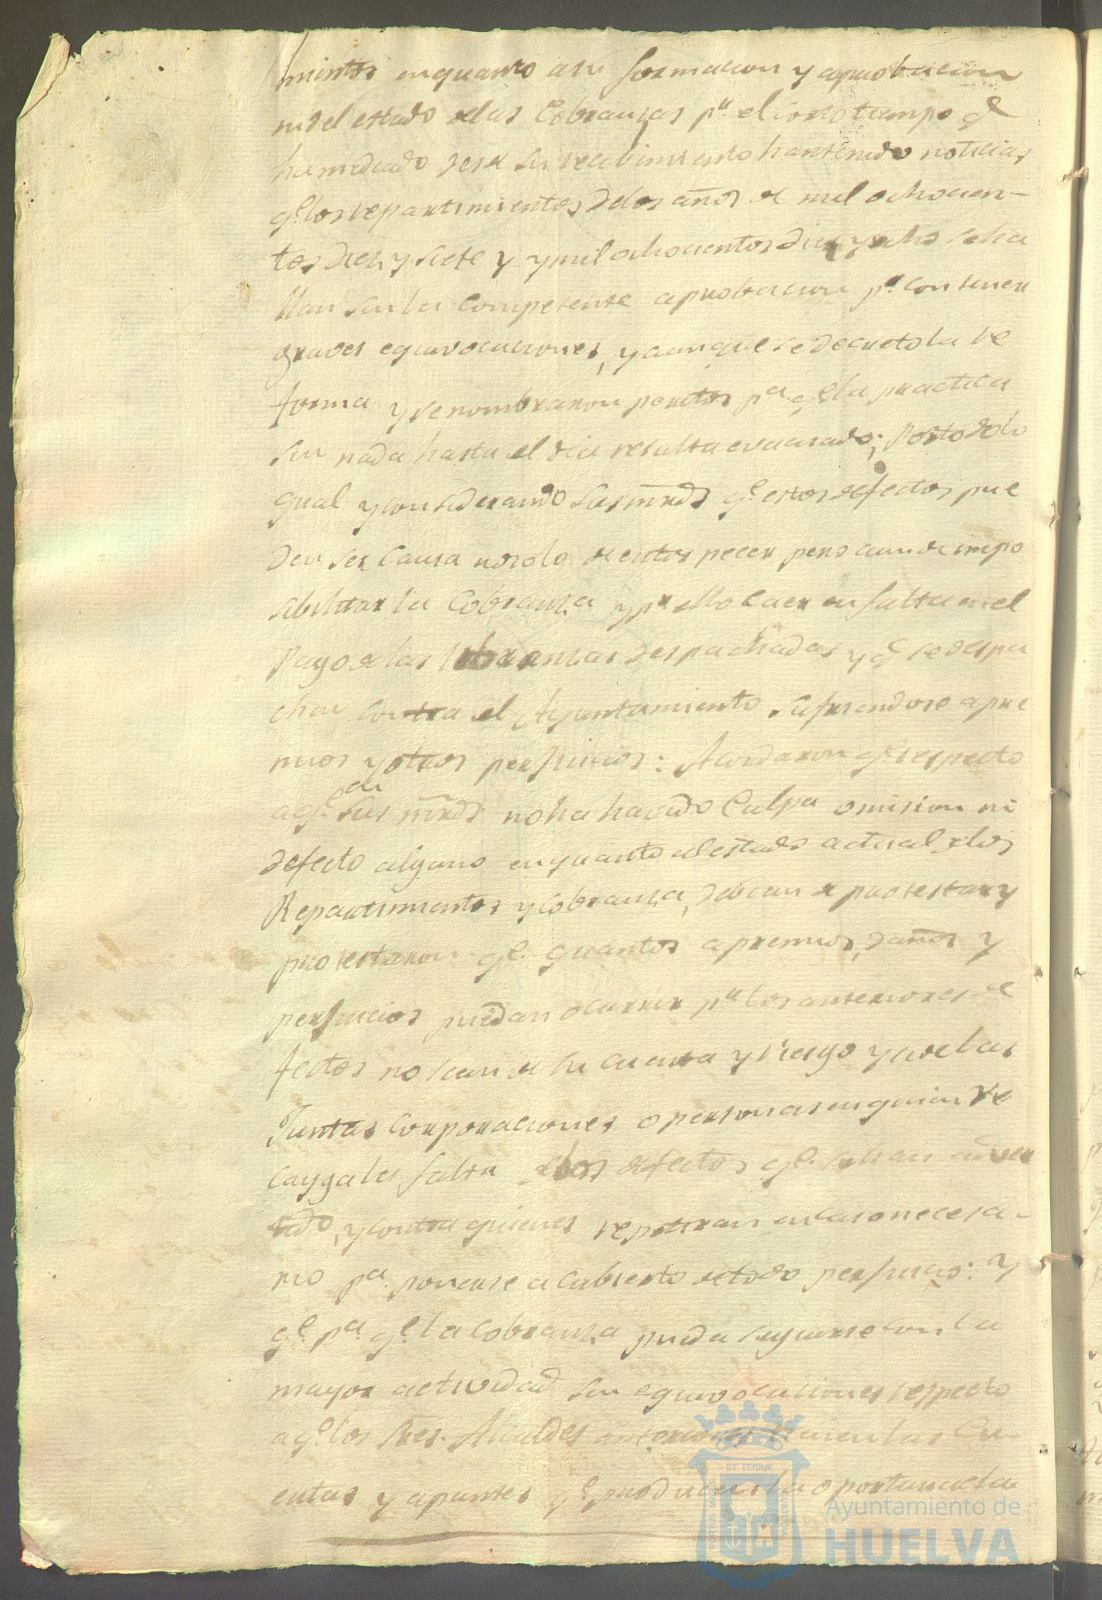 mientos enquanto asu formacion y aprobacion
ni del estado delas Cobranzas pr el corto tiempo q.e
ha mediado desde su recibimiento han tenido noticias
q.e los repartimientos delos años de mil ochocien-
tos diez y siete y y mil ochocientos diez y ocho se ha
llan sin la competente aprobacion pr. contener
graves equivocaciones, y aunque se decretó la re
forma y se nombraron peritos pa q.e la practica
sen nada hasta el dia resulta evacuado; Por todo lo
qual y considerando sus mrds q.e estos defectos pue
den ser causa no solo de entorpecer pero aun de impo
sibilitar la Cobranza y pr ello caer en falta en el
Pago delas libranzas despachadas y q.e se despa
chen contra el Ayuntamiento sufriendose apre
mios y otros perjuicios: Acordaron q.e respecto
aq.e sus mrds no ha havido Culpa omision ni
defecto alguno enquanto al estado actual delos
Repartimientos y Cobranza, debian de protestar y
protestaron q.e quantos apremios, daños y
perjuicios puedan ocurrir pr los anteriores de
fectos no sean de su cuenta y riesgo y si de las
Juntas corporaciones o personas en quienes
cayga la falta delos defectos q.e se han
y contra quienes repetiran en caso necesa-
rio pa. ponerse a Cubierto de todo perjuicio: Y
q.e pa q.e la Cobranza pueda seguirse con la
mayor actividad sin equivocaciones respecto
aq.e los Sres. Alcaldes anteriores tienen las Cu-
entas y apuntes q.e producen la oportuna
ET TERRAE
Ayuntamiento de
HUELVA